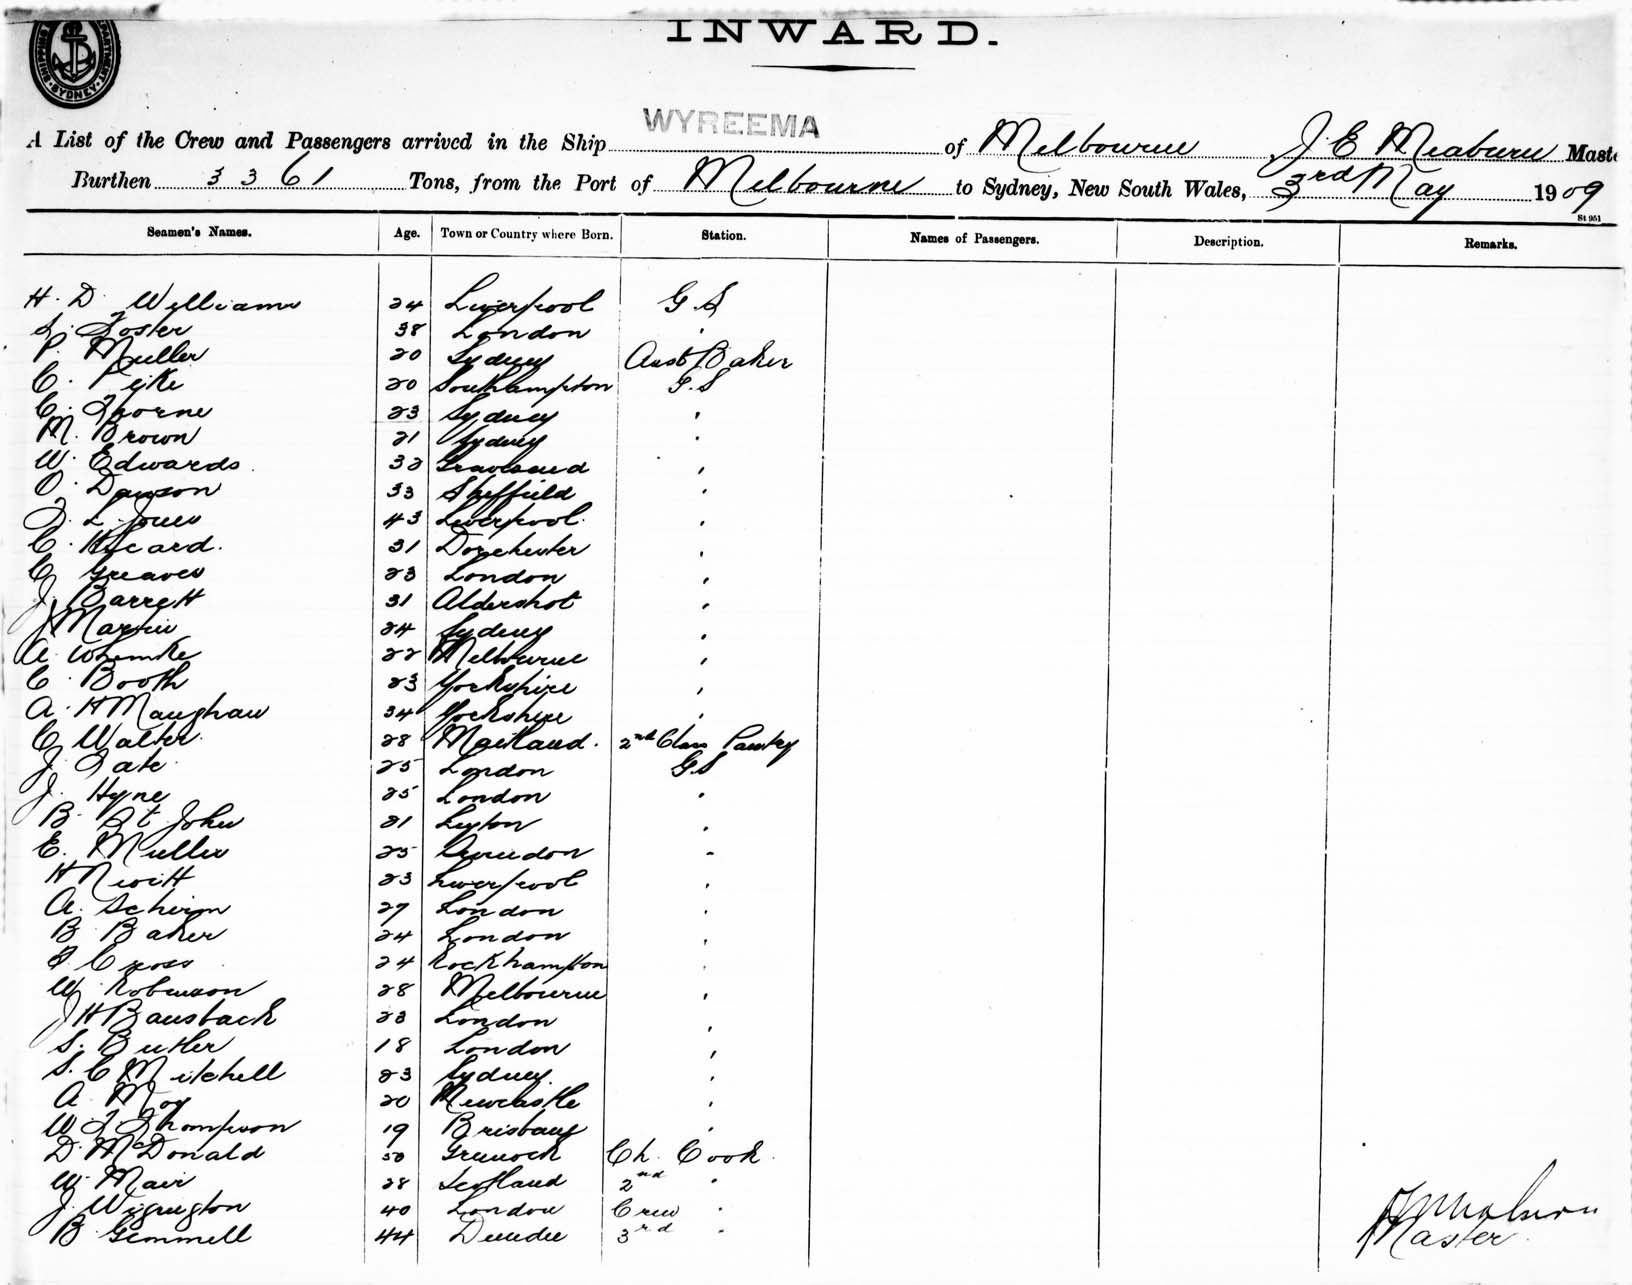 INWARD.
SYDNEY
WYREEMA
A List of the Crew and Passengers arrived in the Ship of Melbourne J. E. Meaburn Master
Burthen 3361 Tons, from the Port of Melbourne to Sydney, New South Wales, 3rd May 1909
St 951
Seamen's Names. Age. Town or Country where Born. Station. Names of Passengers. Description. Remarks.
H. D. Williams 24 Liverpool G. S
Foster 38 London "
P. Muller 20 Sydney Asst Baker
C. Pyke 20 Southampton G. S
C. Thorne 23 Sydney "
M. Brown 21 Sydney "
W. Edwards 32 Gravesend "
O. Dawson 33 Sheffield "
L. Jones 43 Liverpool "
C. Kycard. 31 Dorchester "
C. Greaves 23 London "
J. Barrett 31 Aldershot "
J Martin 24 Sydney "
A. 22 Melbourne "
C. Booth 23 Yorkshire "
A. H Maughan 34 Yorkshire "
C Walter. 28 Maitland. 2nd Class Pantry
J. Tate 25 London G. S
J. Hyne 25 London "
B. St John 21 Leyton "
E. Muller 25 London "
H Newitt 23 Liverpool "
A. Schirm 27 London "
B Baker 24 London "
Cross 24 Rockhampton "
W. Robinson 28 Melbourne "
J H Bausback 23 London "
S. Butler 18 London "
S. C Mitchell 23 Sydney "
A. Moy 20 Newcastle "
W. Thompson 19 Brisbane "
D. McDonald 50 Greenock Ch. Cook.
W. Mair 28 Scotland 2nd "
J. Wignington 40 London Crew "
B. Gemmell 44 Dundee 3rd "
Master